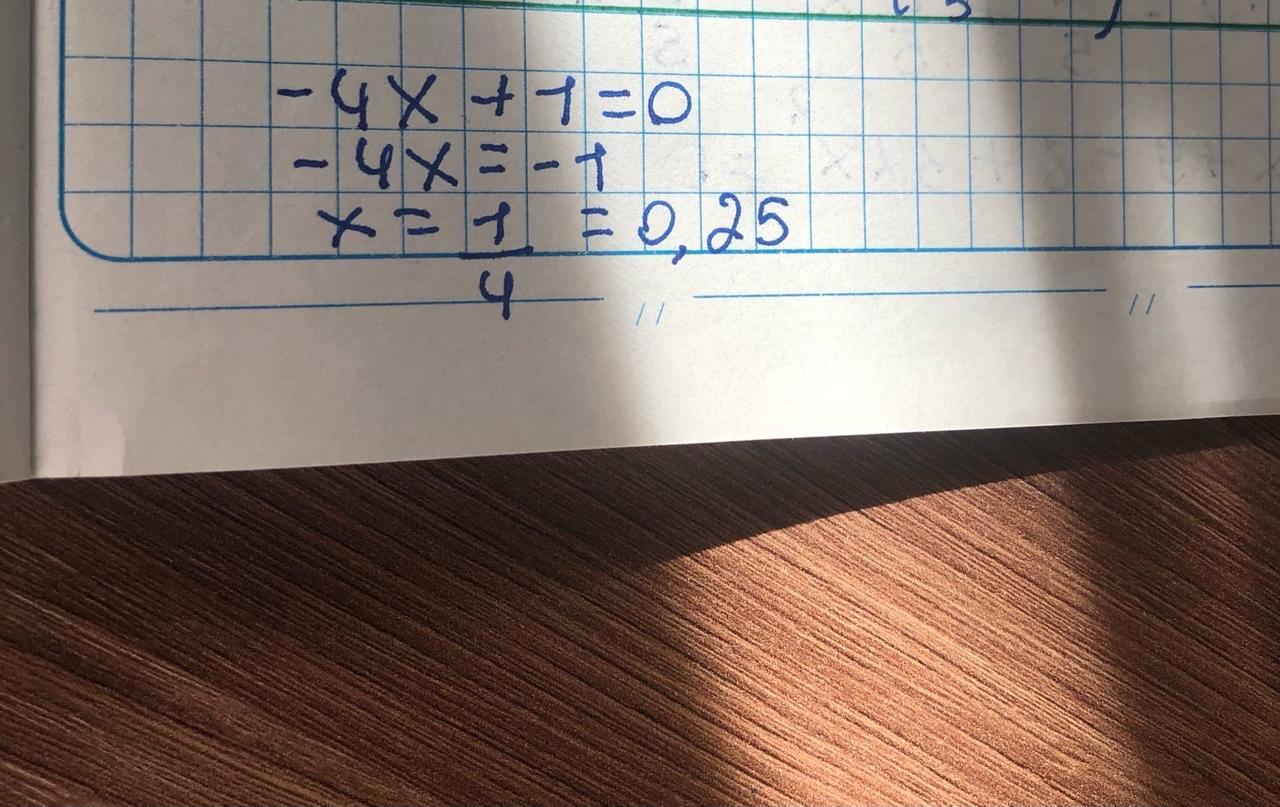 -4x + 1 = 0
-4x = -1
x = 1/4 = 0,25